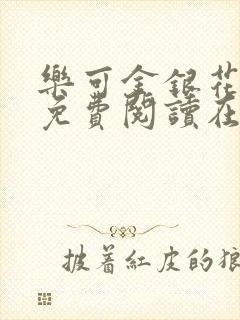 樂可金銀花
免費閱讀在
披着紅皮的狼